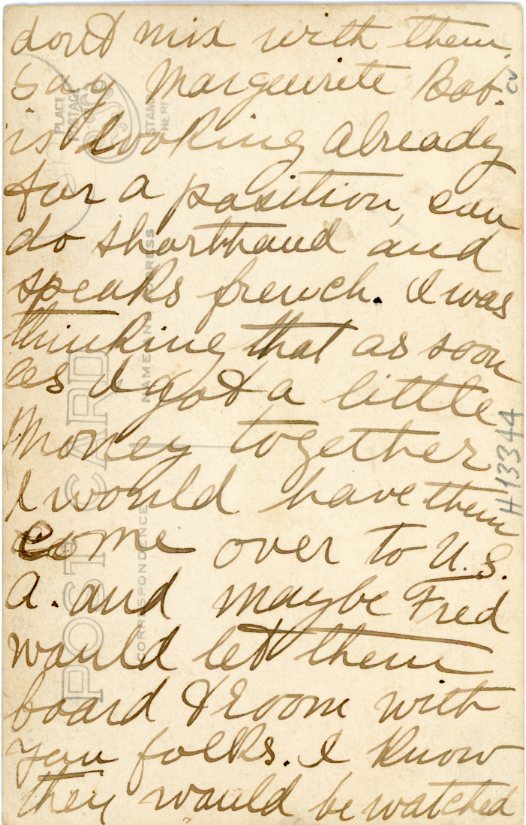 don't mix with them
Say Marguerite Bob.
is looking already
for a position, can
do shorthand and
speaks french. I was
thinking that as soon
as I got a little
Money together
I would have them
Come over to U.S.
A. and maybe Fred
would let them
board & room with
you folks. I know
they would be watched
POST CARD
CORRESPONDENCE
NAME AND ADDRESS
PLACE
POSTAGE
STAMP
HERE
H13344